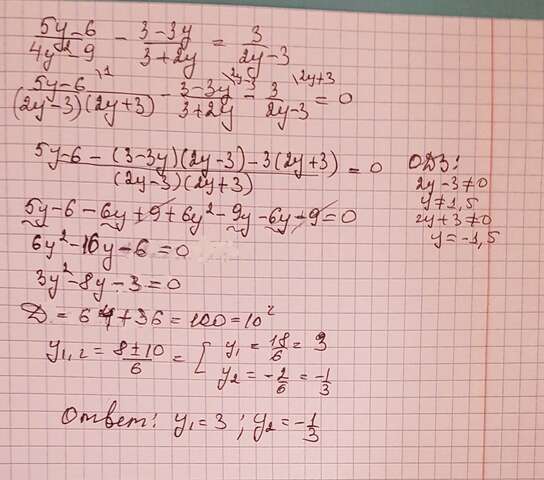 (5y-6)/(4y²-9) - (3-3y)/(3+2y) = 3/(2y-3)
(5y-6)\1/((2y-3)(2y+3)) - (3-3y)\2y-3/(3+2y) - 3\2y+3/(2y-3) = 0
(5y-6-(3-3y)(2y-3)-3(2y+3))/((2y-3)(2y+3)) = 0
ОДЗ:
2y-3≠0
y≠1,5
2y+3≠0
y=-1,5
5y-6-6y+9+6y²-9y-6y-9=0
6y²-16y-6=0
3y²-8y-3=0
D=64+36=100=10²
y₁,₂=(8±10)/6=[ y₁=18/6=3
y₂=-2/6=-1/3
Ответ: y₁=3; y₂=-1/3